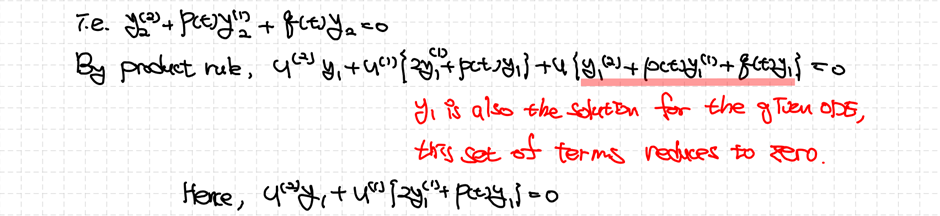 I.e. y₂⁽²⁾ + p(t)y₂⁽¹⁾ + q(t)y₂ = 0
By product rule, u⁽²⁾y₁ + u⁽¹⁾{2y₁⁽¹⁾ + p(t)y₁} + u{y₁⁽²⁾ + p(t)y₁⁽¹⁾ + q(t)y₁} = 0
y₁ is also the solution for the given ODE,
this set of terms reduces to zero.
Hence, u⁽²⁾y₁ + u⁽¹⁾{2y₁⁽¹⁾ + p(t)y₁} = 0